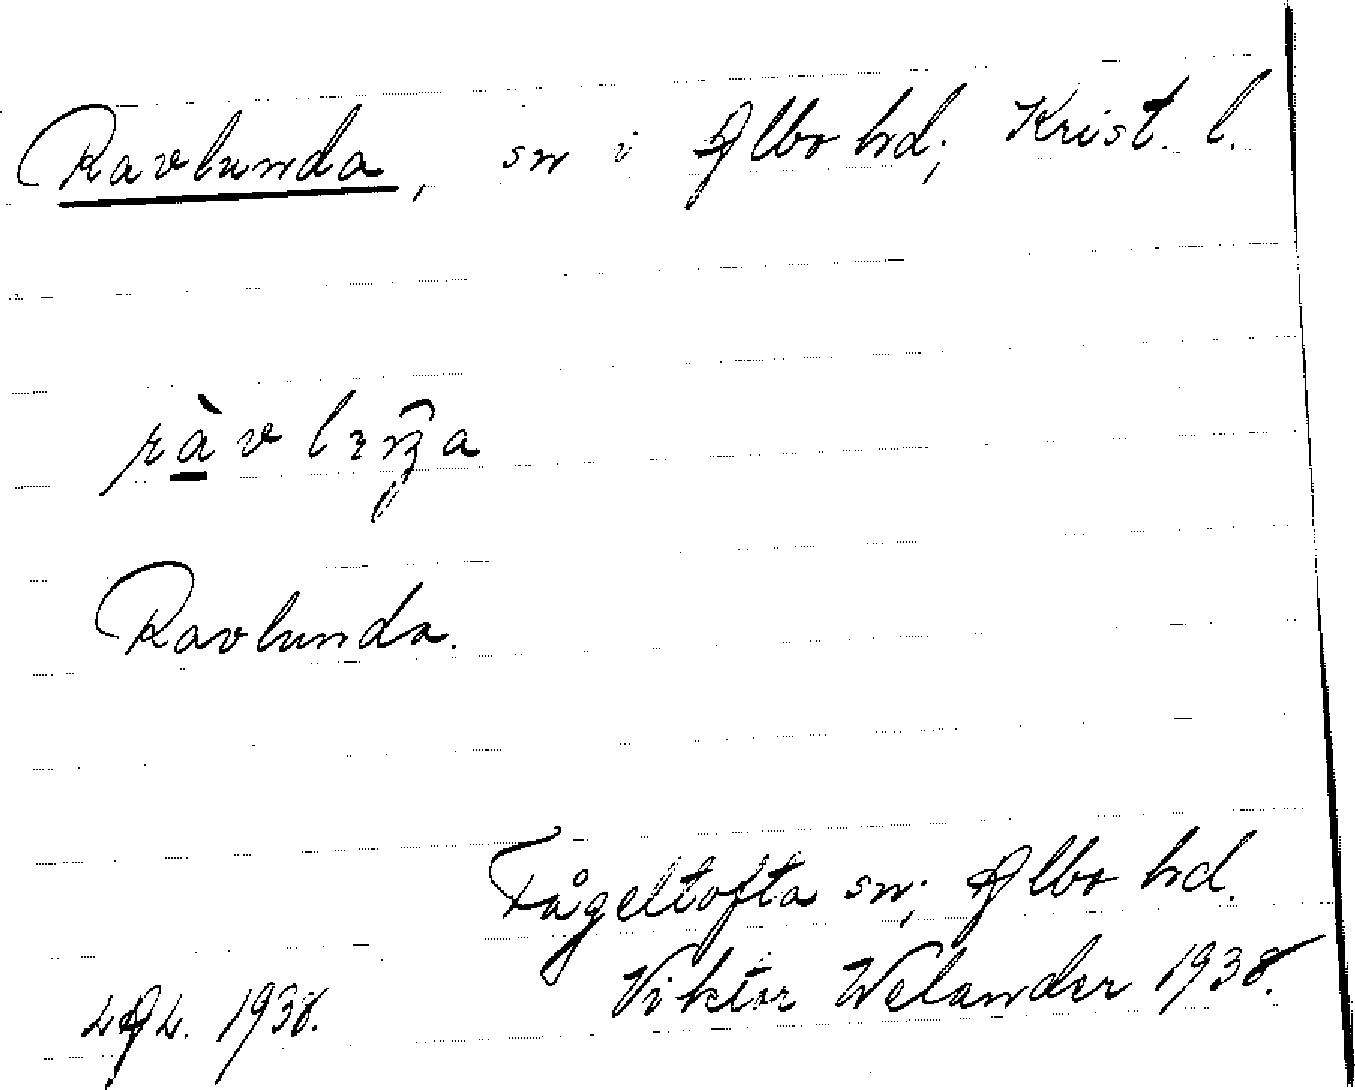 Ravlunda, sn i Albo hd; Krist. l.
Ravlunda.
Fågeltofta sn; Albo hd.
Viktor Welander 1938.
LAL. 1938.